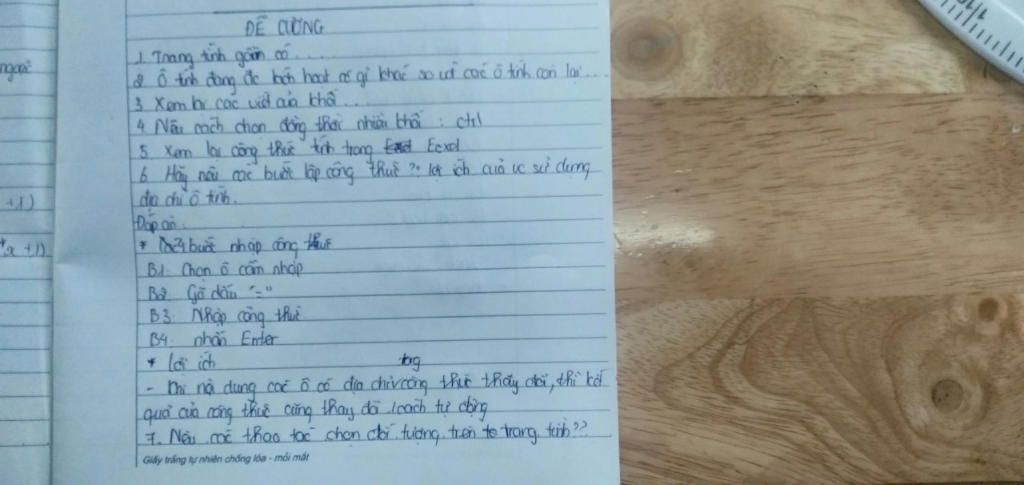 ĐỀ CƯƠNG
1. Trang tính gồm có....
2. Ô tính đang đc kích hoạt có gì khác so với các ô tính còn lại...
3. Xem lại các viết của khối...
4. Nêu cách chọn đồng thời nhiều khối : ctrl
5. Xem lại công thức tính trong Ecxel
6. Hãy nêu các bước lập công thức ?? lợi ích của vc sử dụng
địa chỉ ô tính.
Đáp án:
* bước nhập công thức
B1: Chọn ô cần nhập
B2: Gõ dấu "="
B3: Nhập công thức
B4: nhấn Enter
* Lợi ích
- Khi nội dung các ô có địa chỉ trong công thức thấy đổi, thì kết
quả của công thức cũng thay đổi 1 cách tự động
7. Nêu các thao tác chọn đối tượng trên trang tính??
Giấy trắng tự nhiên chống lóa - mỏi mắt
ngoặc
+1)
x +1)